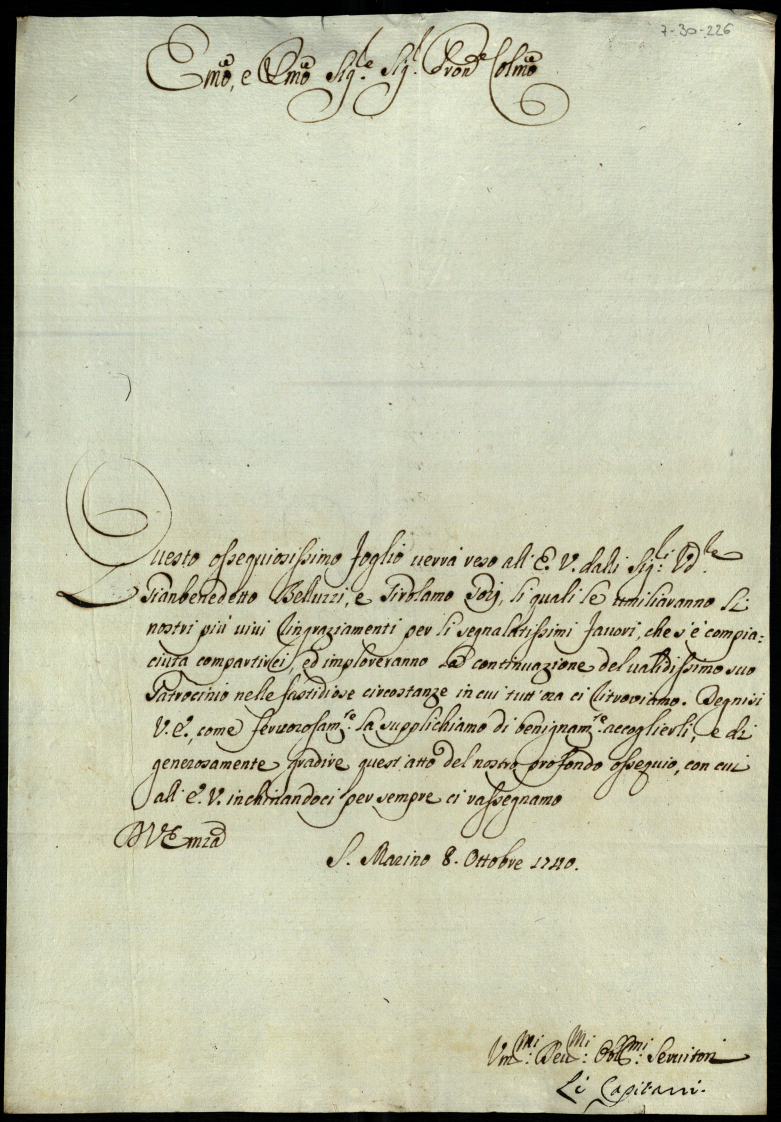 7-30-226
Emo, e Rmo Sig.e Sig.e Pron.e Colmo
Questo ossequiosissimo foglio verrà reso all' E. V. dalli Sig.i Ud.le
Gianbenedetto Belluzzi, e Girolamo Gozj, li quali le umiliaranno li
nostri più vivi Ringraziamenti per li segnalatissimi favori, che s'è compia=
ciuta compartirci, ed imploreranno la continuazione del validissimo suo
Patrocinio nelle fastidiose circostanze in cui tutt'ora ci ritroviamo. Degnisi
V. E., come fervorosam.te la supplichiamo di benignam.te accoglierli, e di
generosamente gradire quest'atto del nostro profondo ossequio, con cui
all' E. V. inchinandoci per sempre ci rassegnamo
D V Emza
S. Marino 8. Ottobre 1740.
Um.mi Dev.mi Obl.mi Servitori
Li Capitani.